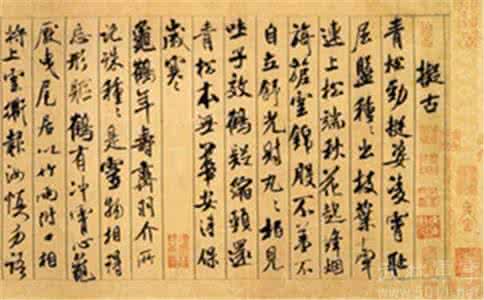 擬古
青松勁挺姿凌霄恥
屈盤種種出枝葉牽
連上松端秋花起絳煙
旖旎雲錦殷不羞不
自立舒光射丸丸柏見
吐子效鶴疑縮頸還
青松本無華安得保
歲寒
龜鶴年壽齊羽介所
託殊種種是靈物相得
忘形軀鶴有沖霄心龜
厭曳尾居以竹兩附口相
將上雲衢報汝慎勿語